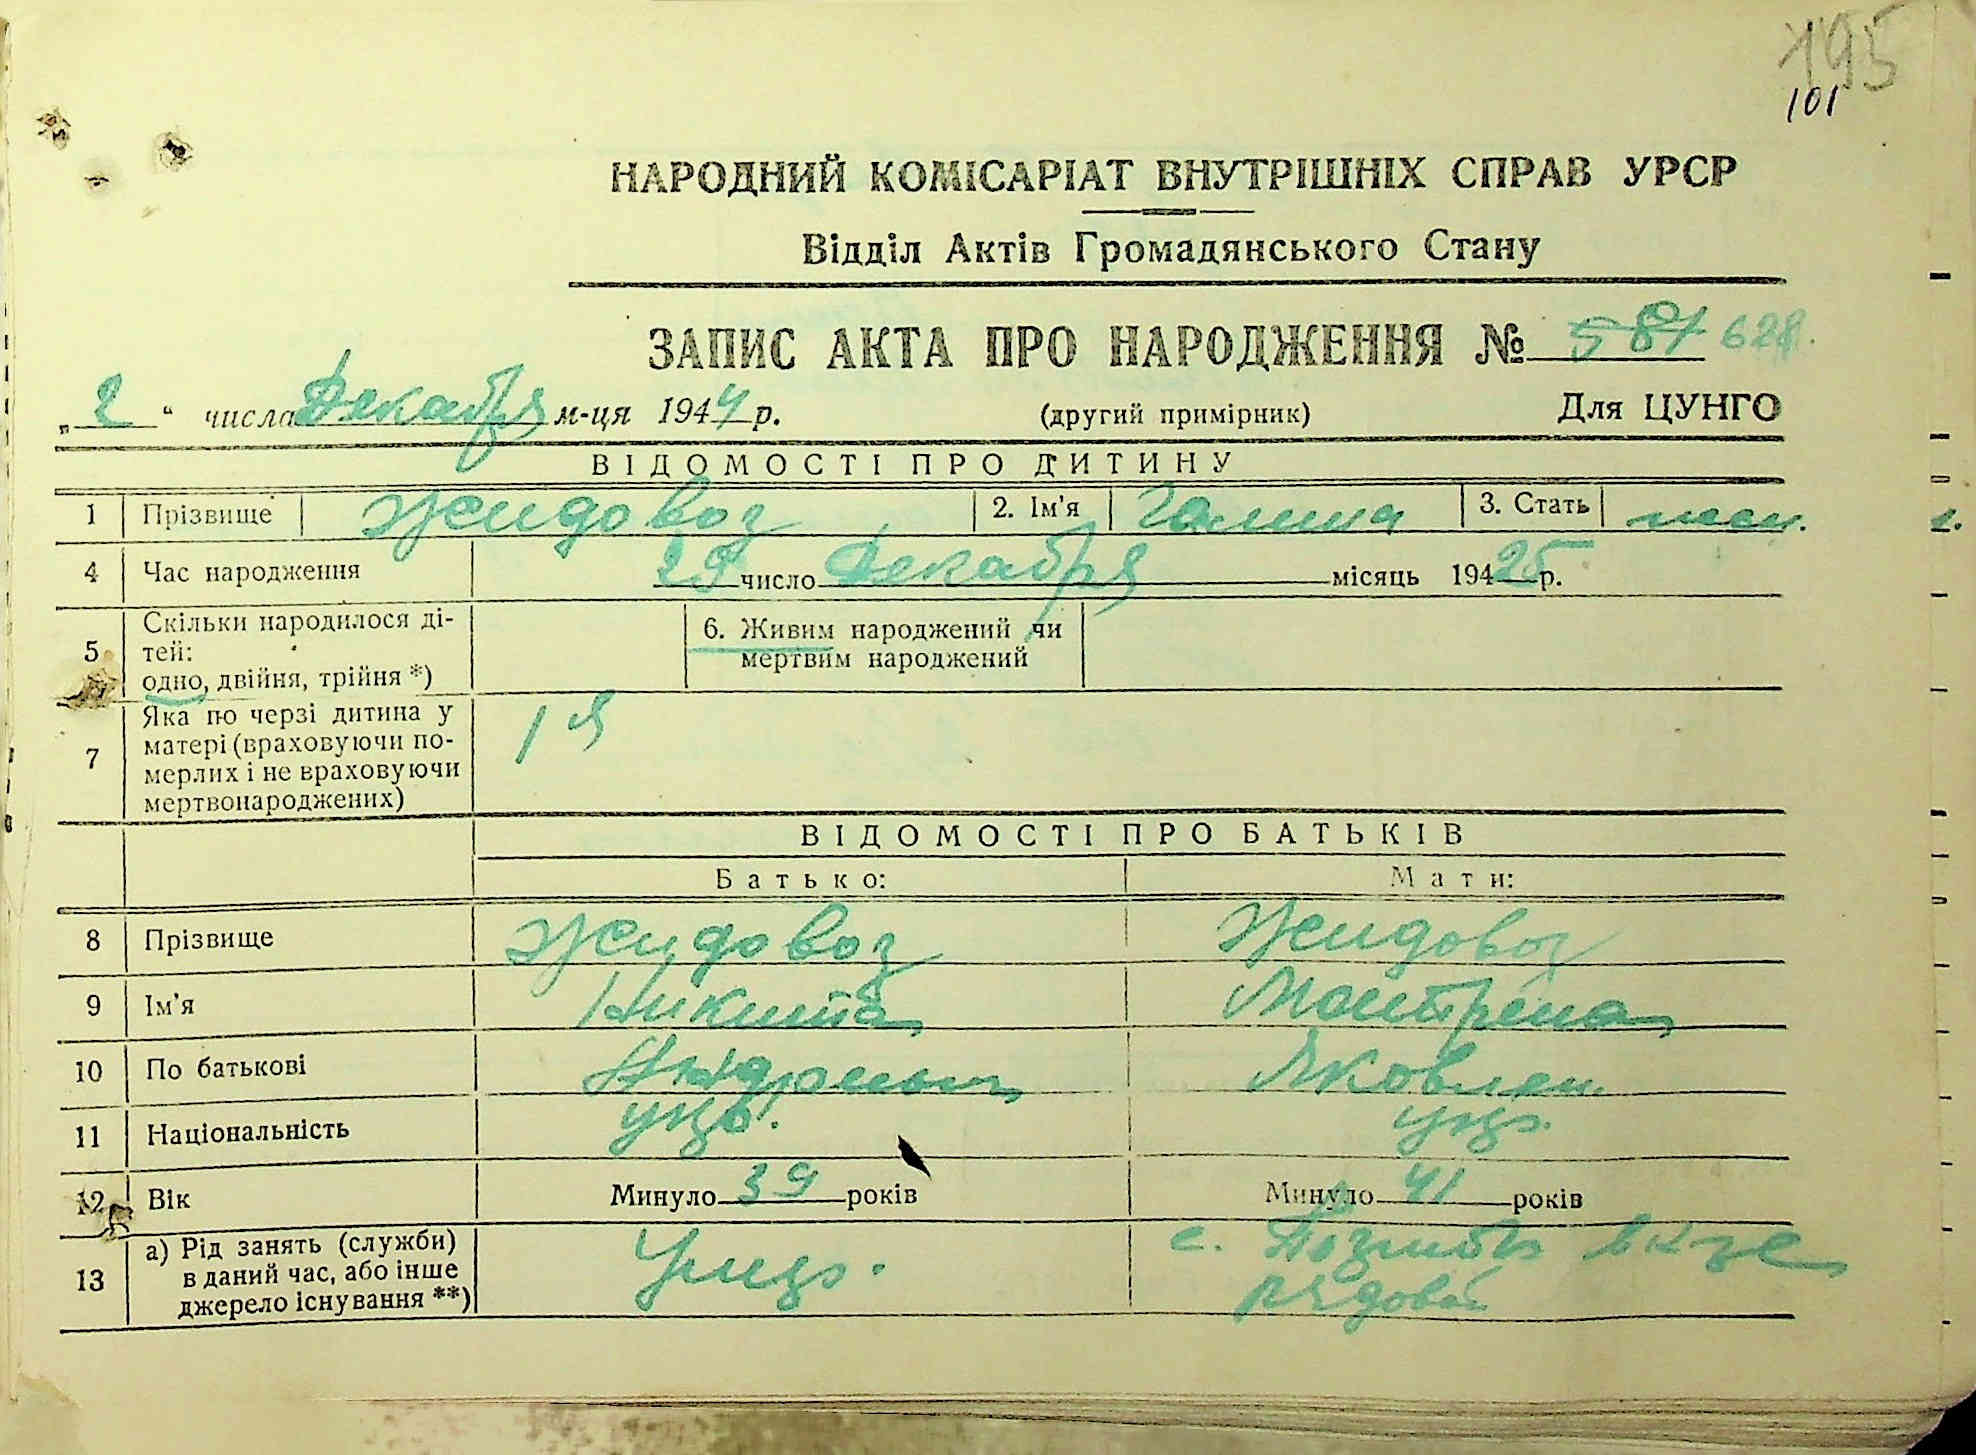 195
101
НАРОДНИЙ КОМІСАРІАТ ВНУТРІШНІХ СПРАВ УРСР
Відділ Актів Громадянського Стану
ЗАПИС АКТА ПРО НАРОДЖЕННЯ № 581 628.
„2“ числа Декабря м-ця 1944 р. (другий примірник) Для ЦУНГО
ВІДОМОСТІ ПРО ДИТИНУ
1 Прізвище Жидовоз 2. Ім'я Галина 3. Стать жен.
4 Час народження 29 число Декабря місяць 1925 р.
5 Скільки народилося ді-
тей:
одно, двійня, трійня *)
6. Живим народжений чи
мертвим народжений
7 Яка по черзі дитина у
матері (враховуючи по-
мерлих і не враховуючи
мертвонароджених)
1 я
ВІДОМОСТІ ПРО БАТЬКІВ
Батько: Мати:
8 Прізвище Жидовоз Жидовоз
9 Ім'я Никита Мотрена
10 По батькові Яковлев.
11 Національність укр. укр.
12 Вік Минуло 39 років Минуло 41 років
13 а) Рід занять (служби)
в даний час, або інше
джерело існування **)
с.
рядовой